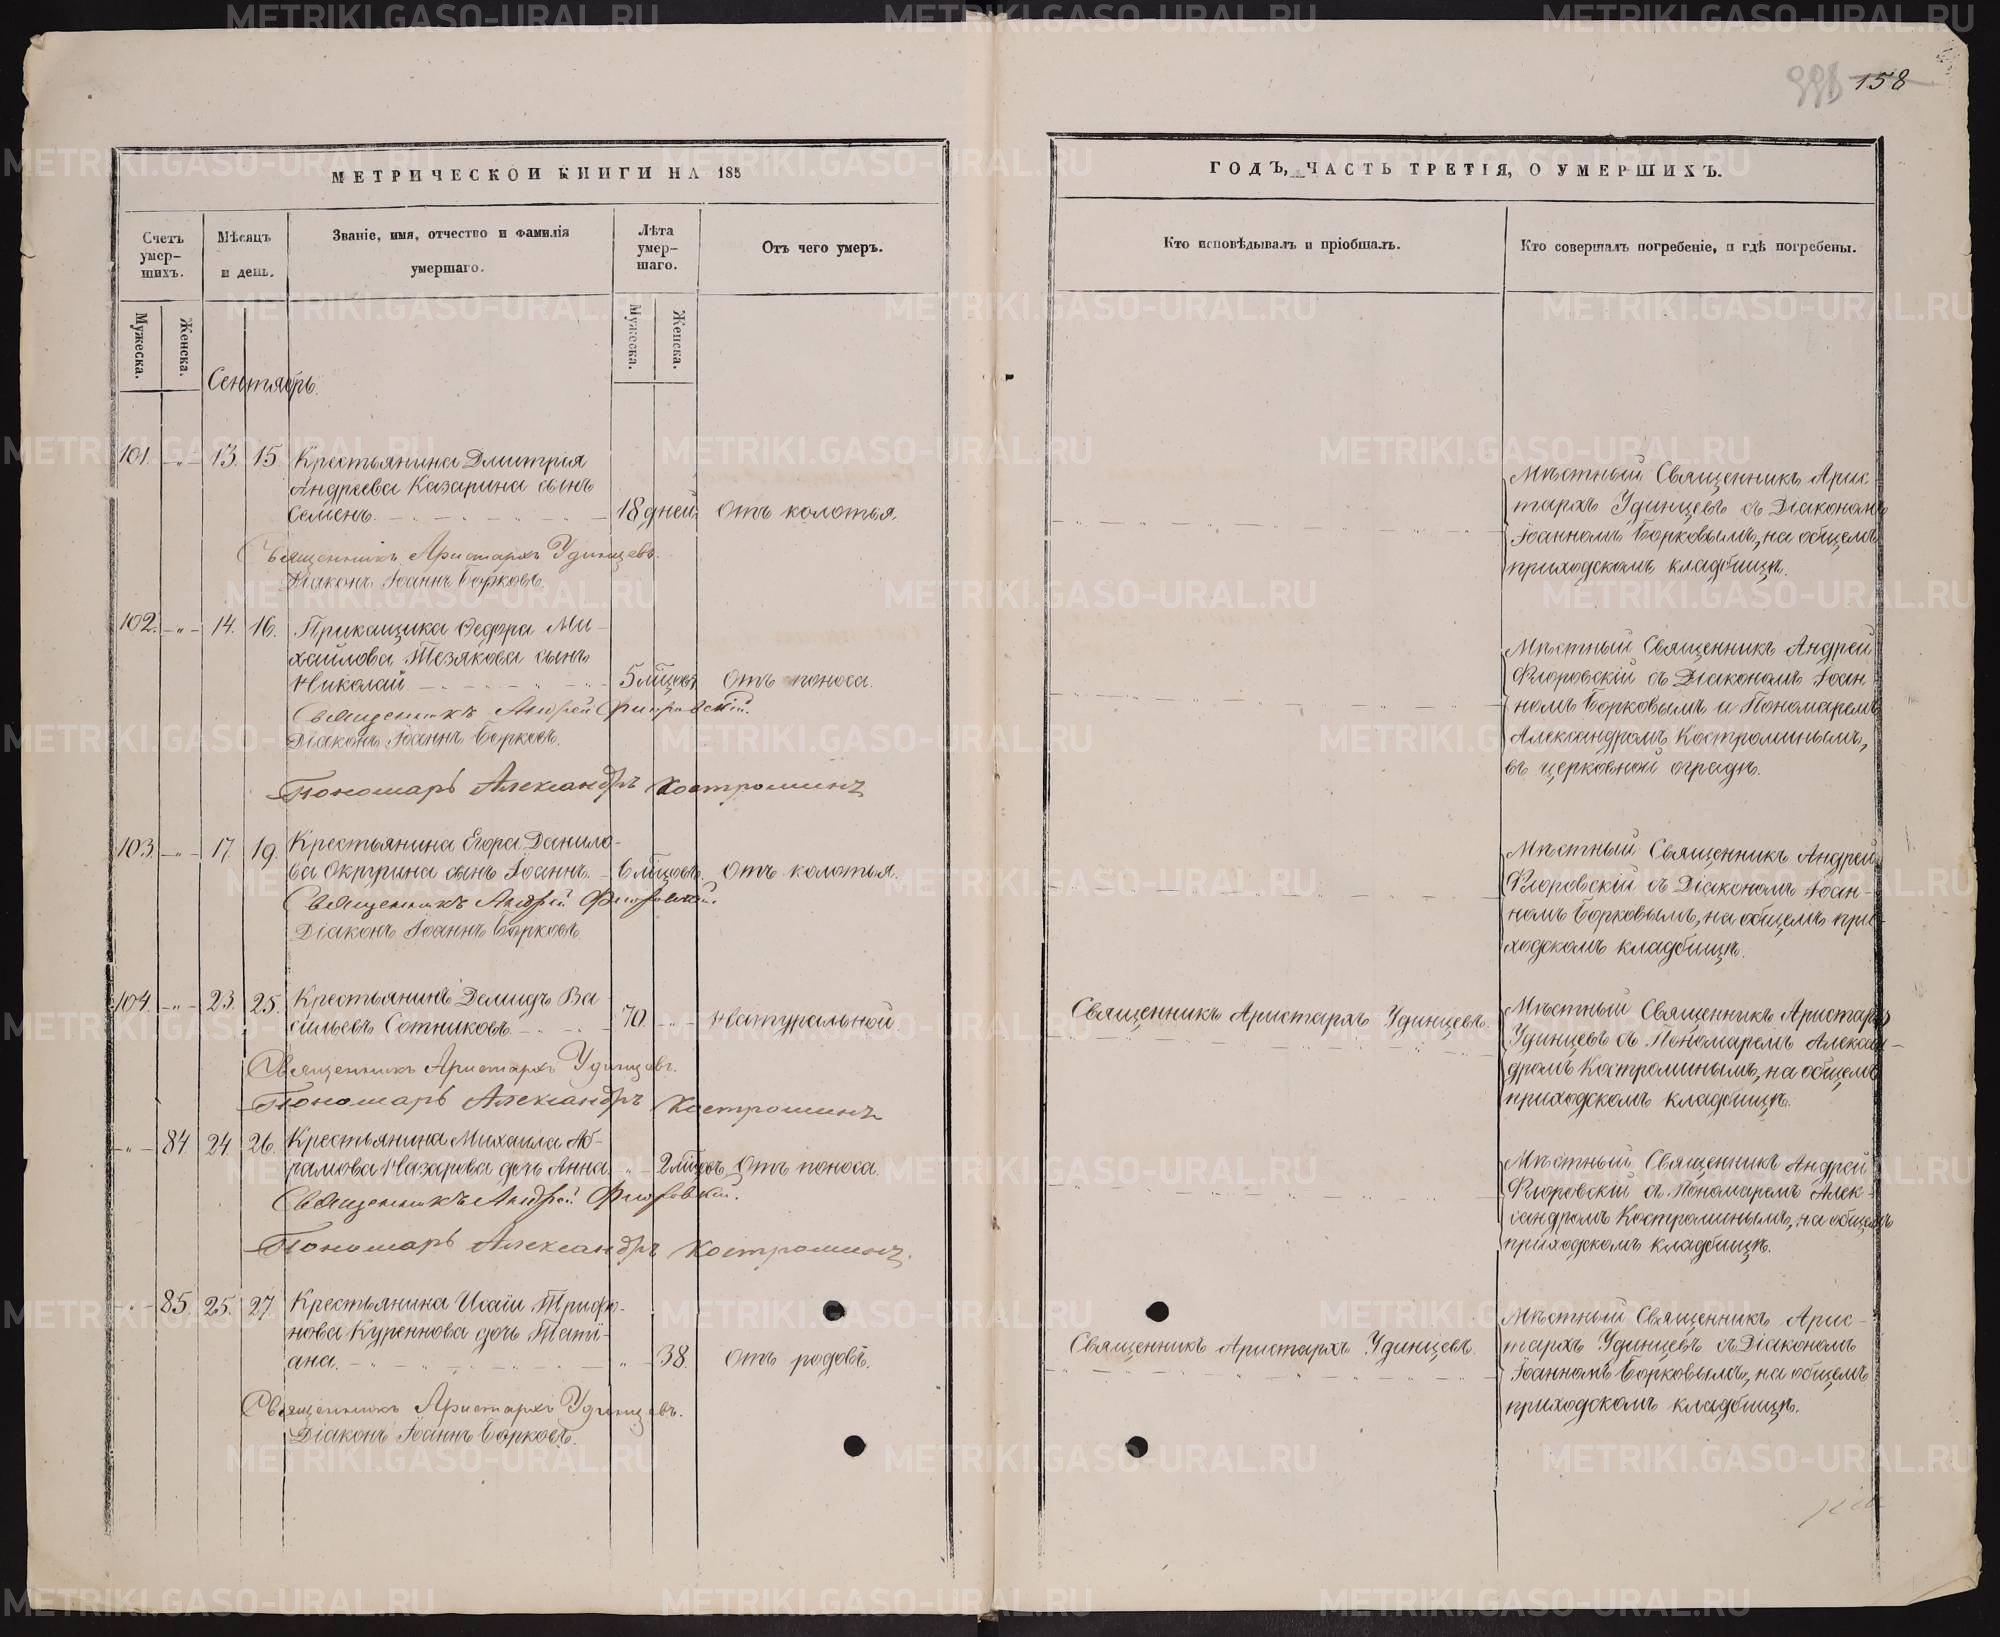 158
МЕТРИЧЕСКОЙ КНИГИ НА 185
ГОДЪ, ЧАСТЬ ТРЕТІЯ, О УМЕРШИХЪ.
Счетъ умер-
шихъ.
Мѣсяцъ
и день.
Званіе, имя, отчество и фамилія
умершаго.
Лѣта
умер-
шаго.
Отъ чего умеръ.
Кто исповѣдывалъ и пріобщалъ.
Кто совершалъ погребеніе, и гдѣ погребены.
Мужеска.
Женска.
Мужеска.
Женска.
Сентябрь.
101. - " - 13. 15. Крестьянина Дмитрія
Андреева Казарина сынъ
Семенъ. 18 дней. Отъ колотья.
Мѣстный Священникъ Арис-
тархъ Удинцевъ съ Діакономъ
Іоанномъ Борковымъ, на общемъ
приходскомъ кладбищѣ.
Священникъ Аристархъ Удинцевъ.
Діаконъ Іоаннъ Борковъ.
102. - " - 14. 16. Прикащика Ѳедора Ми-
хайлова Тезякова сынъ
Николай. 5 мѣсцевъ Отъ поноса.
Мѣстный Священникъ Андрей
Флоровскій съ Діакономъ Іоан-
номъ Борковымъ и Пономаремъ
Александромъ Костроминымъ,
въ церковной оградѣ.
Священникъ Андрей Флоровскій.
Діаконъ Іоаннъ Борковъ.
Пономарь Александръ Костроминъ
103. - " - 17. 19. Крестьянина Егора Данило-
ва Окрурина сынъ Іоаннъ. 6 мѣсцевъ. Отъ колотья.
Мѣстный Священникъ Андрей
Флоровскій съ Діакономъ Іоан-
номъ Борковымъ, на общемъ при-
ходскомъ кладбищѣ.
Священникъ Андрей Флоровскій.
Діаконъ Іоаннъ Борковъ.
104. - " - 23. 25. Крестьянинъ Демидъ Ва-
сильевъ Сотниковъ. 70. - " - Натуральной.
Священникъ Аристархъ Удинцевъ.
Мѣстный Священникъ Аристархъ
Удинцевъ съ Пономаремъ Алексан-
дромъ Костроминымъ, на общемъ
приходскомъ кладбищѣ.
Священникъ Аристархъ Удинцевъ.
Пономарь Александръ Костроминъ
- " - 84. 24. 26. Крестьянина Михаила Аб-
рамова Назарова дочь Анна. - " - 2 мѣсцъ. Отъ поноса.
Мѣстный Священникъ Андрей
Флоровскій съ Пономаремъ Алек-
сандромъ Костроминымъ, на общемъ
приходскомъ кладбищѣ.
Священникъ Андрей Флоровскій.
Пономарь Александръ Костроминъ.
- " - 85. 25. 27. Крестьянина Исаіи Трифо-
нова Куреннова дочь Таті-
ана. - " - 38. Отъ родовъ.
Священникъ Аристархъ Удинцевъ.
Мѣстный Священникъ Арис-
тархъ Удинцевъ съ Діакономъ
Іоанномъ Борковымъ, на общемъ
приходскомъ кладбищѣ.
Священникъ Аристархъ Удинцевъ.
Діаконъ Іоаннъ Борковъ.
METRIKI.GASO-URAL.RU